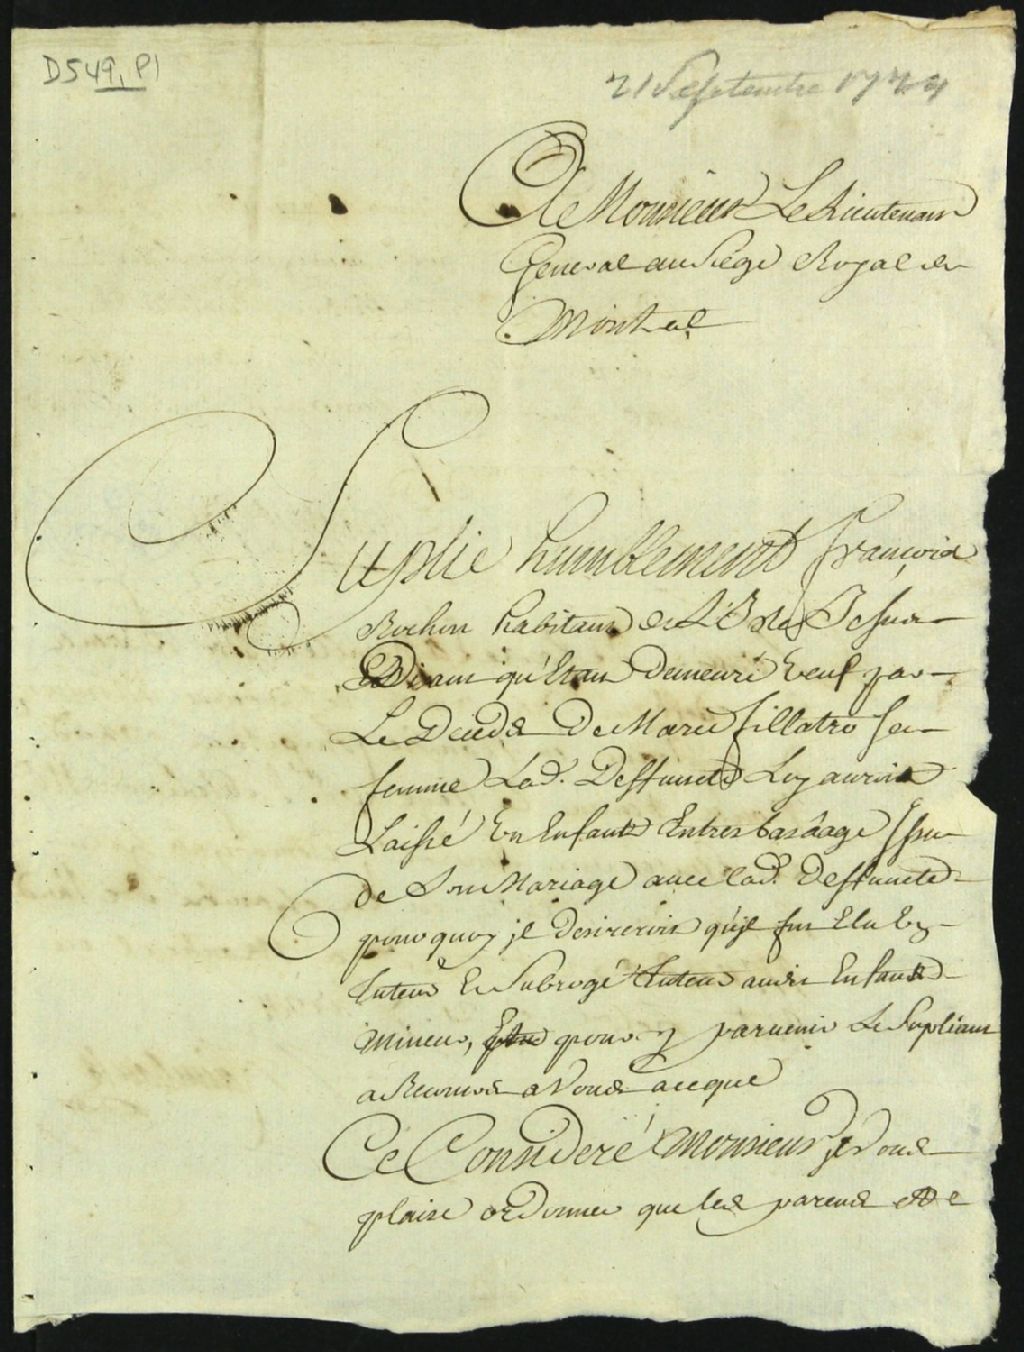 D549, P1
21 Septembre 17
A Monsieur Le Lieutenant
General au Siege Royal de
Montreal
Suplie humblement François
Rochon habitant de L'Isle Jesus
Disant qu'Etant demeuré veuf par
Le Deceds De Marie fillatro sa
femme Lad. Deffuncte Luy auroit
Laissé Un Enfant En bas aage Issu
de Son Mariage avec lad. Deffuncte
pourquoy il desireroit qu'il fut Elu Un
tuteur Et Subrogé tuteur audit Enfant
mineur, pour y parvenir Le Supliant
a Recours a Vous a ce que
Ce Consideré Monsieur Il Vous
plaise ordonner que les parens et